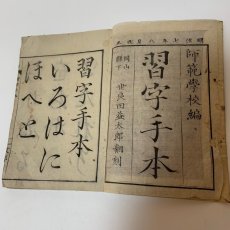 明治七年八月
師範學校編
習字手本
岡山縣下
世良田盛太郎翻刻
習字手本
いろはに
ほへと